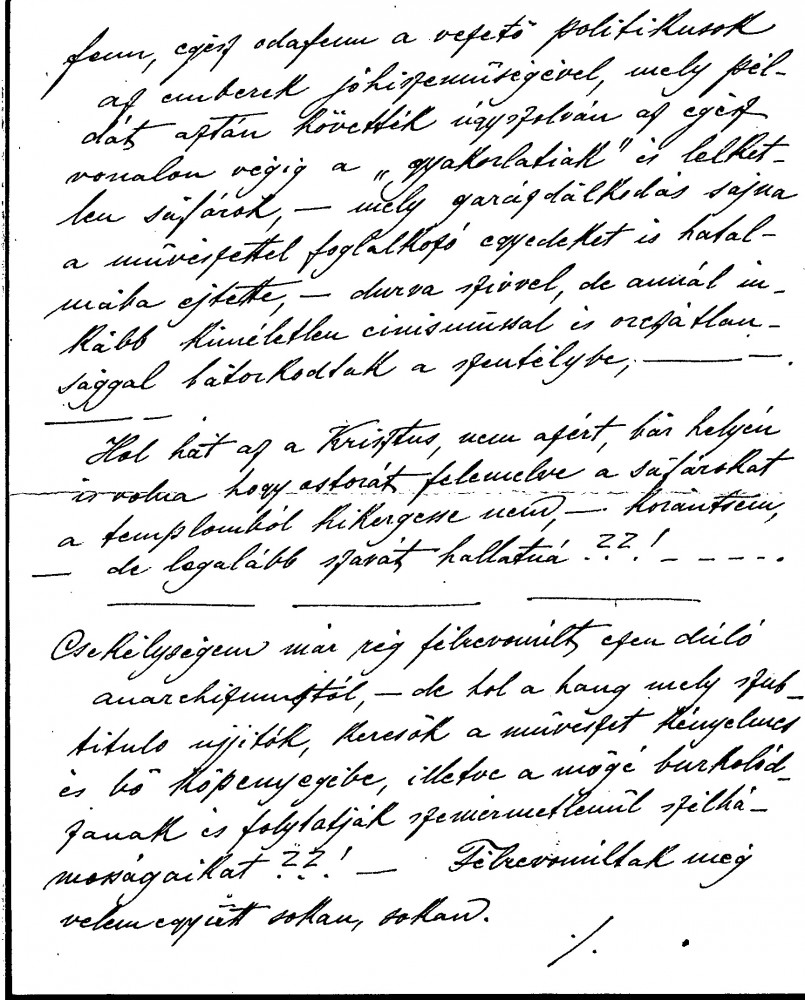 fenn, egész odafenn a vezető politikusok
az emberek jóhiszeműségével, mely pél-
dát aztán követték úgyszolván az egész
vonalon végig a „gyakorlatiak" és lelket-
len sáfárok, — mely garázdálkodás sajna
a művészettel foglalkozó egyedeket is hatal-
mába ejtette, — durva szivvel, de annál in-
kább kiméletlen cinismussal és orczátlan-
sággal bátorkodtak a szentélybe, —— —.
Hol hát az a Krisztus, nem azért, bár helyén
is volna hogy ostorát felemelve a sáfárokat
a templomból kikergesse nem, — korántsem,
— de legalább szavát hallatná ??! — — — —.
Csekélységem már rég félrevonúlt ezen dúló
anarchizmustól, — de hol a hang mely szub-
titulo ujjitók, keresők a művészet kényelmes
és bő köpenyegébe, illetve a mögé burkolód-
zanak és folytatják szemérmetlenűl szélhá-
mosságaikat ??! — Félrevonúltak még
velem együtt sokan, sokan.
./.